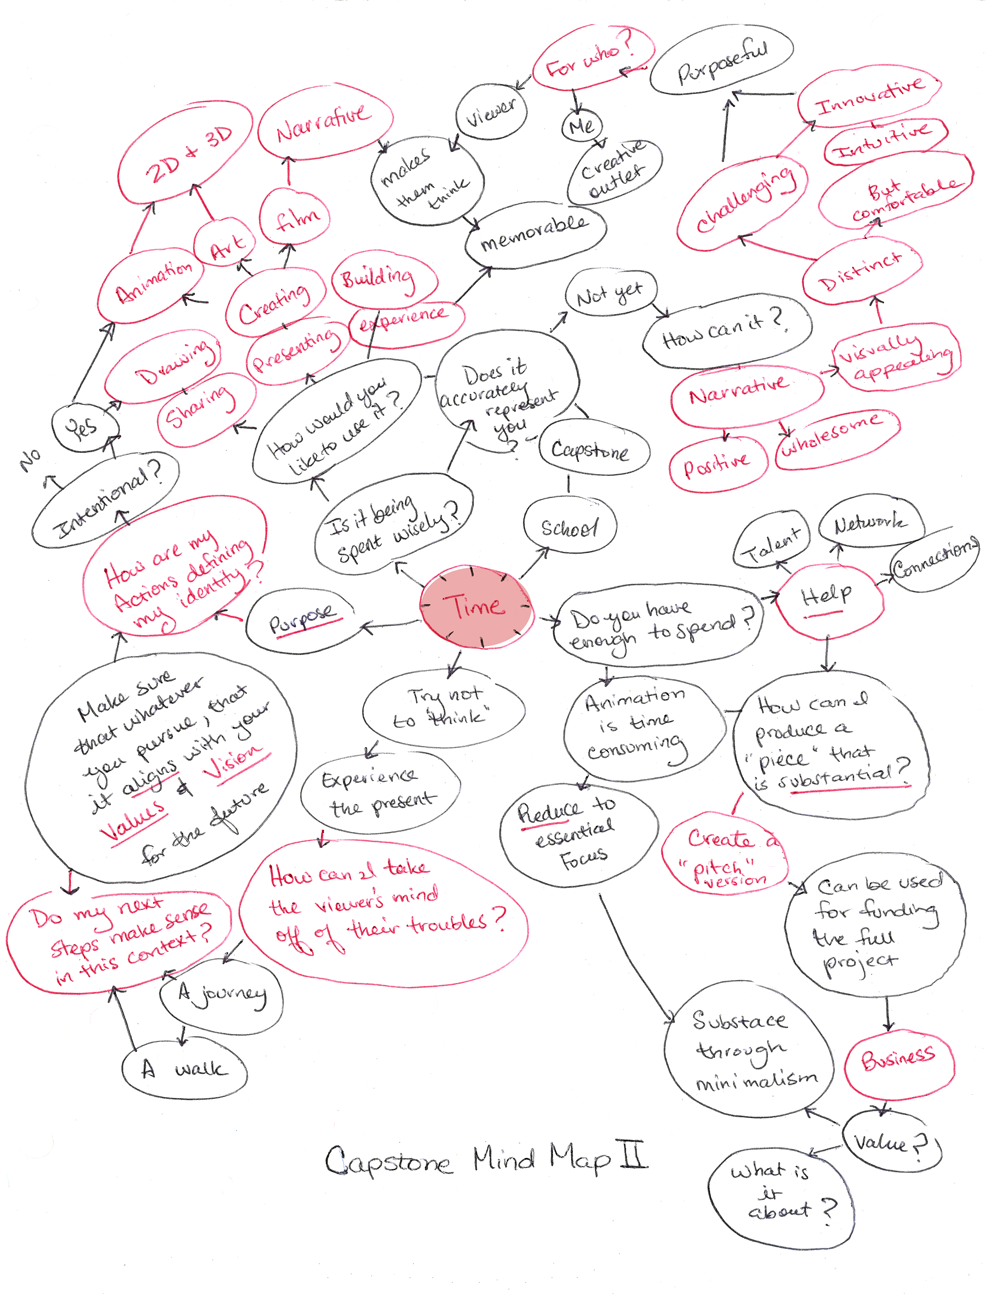 For who?
Purposeful
viewer
Me
Creative
outlet
makes
them
think
memorable
Innovative
Intuitive
But
comfortable
challenging
Distinct
2D + 3D
Narrative
film
Art
Animation
Creating
Building
experience
Presenting
Drawing
Sharing
Yes
No
Intentional?
How would you
like to use it?
Does it
accurately
represent
you
?
Not yet
How can it?
Narrative
visually
appealing
Positive
wholesome
Capstone
School
Is it being
spent wisely?
How are my
Actions defining
my identity?
Purpose
Time
Do you have
enough to spend?
Help
Talent
Network
Connections
Make sure
that whatever
you pursue, that
it aligns with your
Values & Vision
for the future
Try not
to "think"
Experience
the present
Animation
is time
consuming
How can I
produce a
"piece" that
is substantial?
Reduce to
essential
Focus
Create a
"pitch"
version
Can be used
for funding
the full
project
Do my next
steps make sense
in this context?
How can I take
the viewer's mind
off of their troubles?
A journey
A walk
Substace
through
minimalism
Business
Value?
What is
it
about?
Capstone Mind Map II